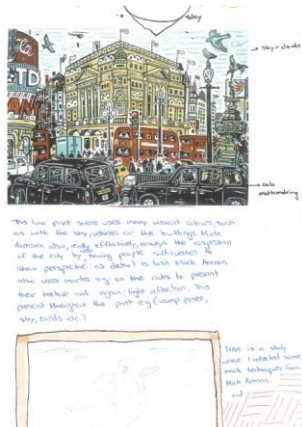 sky
→ sky + clouds
→ cabs
This lino print scene uses many vibrant colours, such
as with the sky, vehicles or the buildings. Mick
Armson also, really effectively, conveys the congestion
of the city by having people silhouettes to
show perspective: as detail is lost. Mick Armson
also uses marks eg on the cabs to present
their texture and again: light reflection. This
present throughout the print eg (lamp posts,
sky, birds etc.).
Here is a study
where I collected some
mark techniques from
Mick Armson.
and